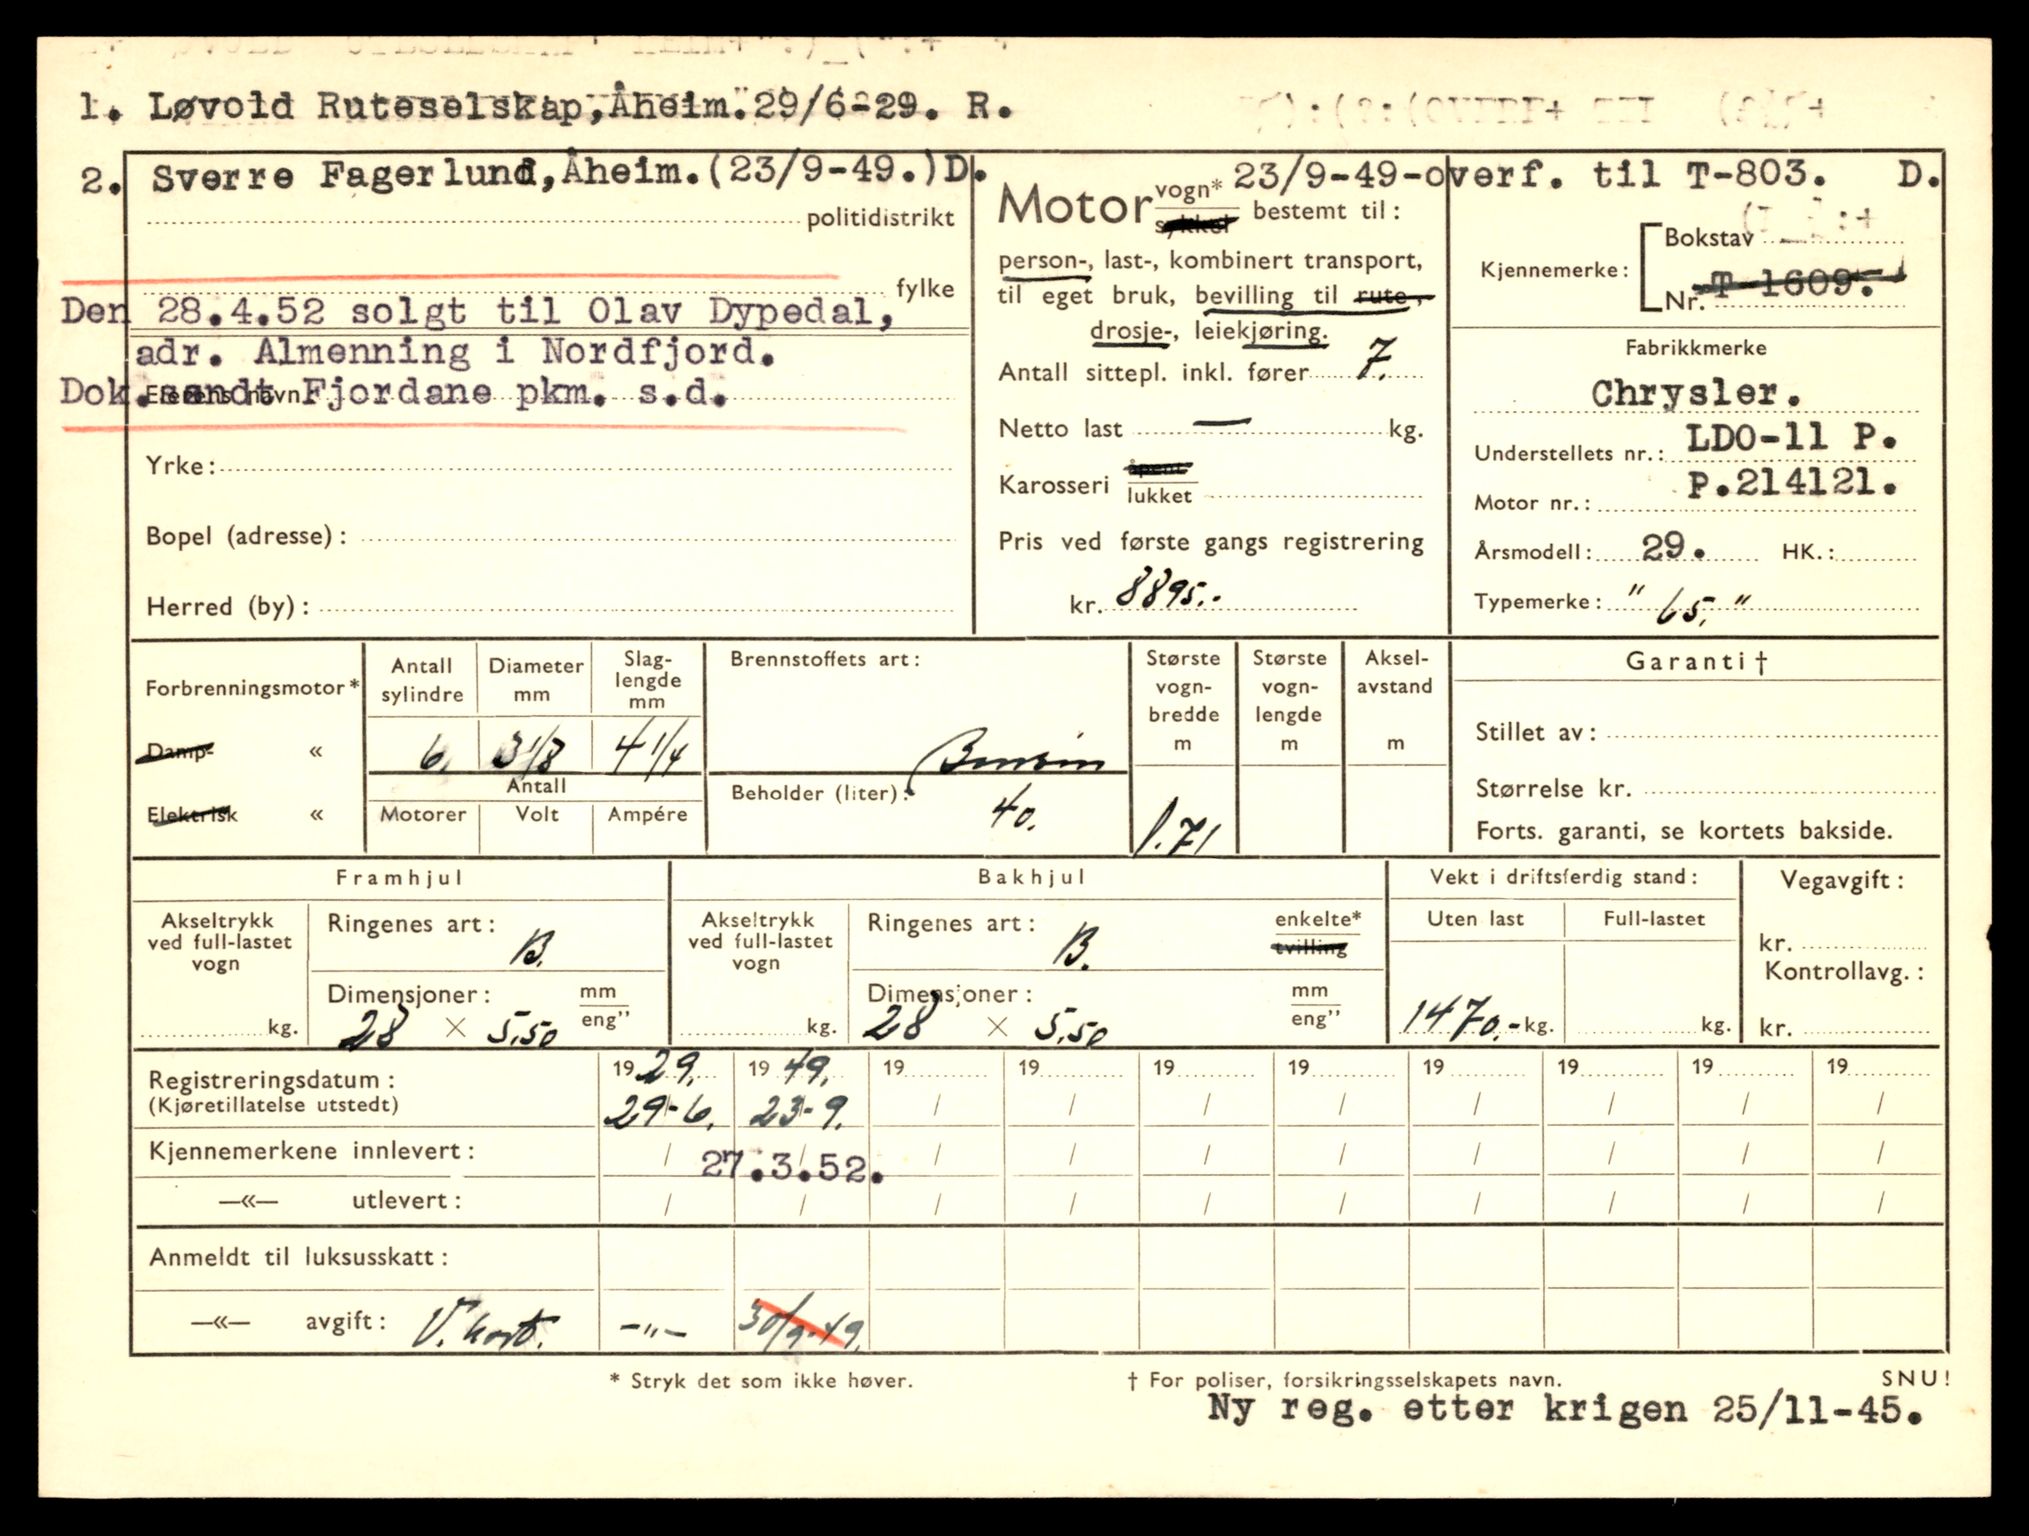 1. Løvold Ruteselskap, Åheim. 29/6-29. R.
2. Sverre Fagerlund, Åheim. (23/9-49.) D.
23/9-49-overf. til T-803. D.
politidistrikt
fylke
Den 28.4.52 solgt til Olav Dypedal,
adr. Almenning i Nordfjord.
Dok. sendt Fjordane pkm. s.d.
Eierens navn
Yrke:
Bopel (adresse):
Herred (by):
Motor vogn* sykkel bestemt til:
person-, last-, kombinert transport,
til eget bruk, bevilling til rute-,
drosje-, leiekjøring.
Antall sittepl. inkl. fører 7.
Netto last — kg.
Karosseri åpent lukket
Pris ved første gangs registrering
kr. 8895.-
Kjennemerke: Bokstav
Nr. T-1609.
Fabrikkmerke
Chrysler.
Understellets nr.: LDO-11 P.
Motor nr.: P.214121.
Årsmodell: 29. HK.:
Typemerke: "65."
Forbrenningsmotor*
Damp- «
Elektrisk «
Antall sylindre
6.
Diameter mm
3 1/8
Slag-lengde mm
4 1/4
Antall
Motorer Volt Ampére
Brennstoffets art:
Bensin
Beholder (liter):
40.
Største vogn-bredde m
1.71
Største vogn-lengde m
Aksel-avstand m
Garanti †
Stillet av:
Størrelse kr.
Forts. garanti, se kortets bakside.
Framhjul
Akseltrykk ved full-lastet vogn
kg.
Ringenes art: B.
Dimensjoner: mm eng"
28 × 5.50
Bakhjul
Akseltrykk ved full-lastet vogn
kg.
Ringenes art: B. enkelte* tvilling
Dimensjoner: mm eng"
28 × 5.50
Vekt i driftsferdig stand:
Uten last Full-lastet
1470.- kg. kg.
Vegavgift:
kr.
Kontrollavg.:
kr.
Registreringsdatum: 1929. 1949. 19 19 19 19 19 19 19 19
(Kjøretillatelse utstedt) 29-6. 23-9. / / / / / / / /
Kjennemerkene innlevert: / 27.3.52. / / / / / / / /
—«— utlevert: / / / / / / / / / /
Anmeldt til luksusskatt:
—«— avgift: V. kort. -"- 30/9-49.
* Stryk det som ikke høver.
† For poliser, forsikringsselskapets navn.
SNU!
Ny reg. etter krigen 25/11-45.